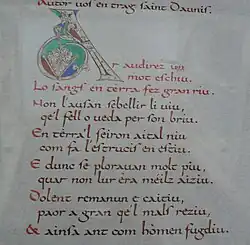 Autor vos en trag saint Daunis.
Ar audirez un
mot eschiu.
Lo sangs en terra fez gran riu.
Non l'ausan sebellir li uiu,
qe'l fell o ueda per son briu.
En terra'l feiron aital niu
com fa l'estrucis en estiu.
E dunc se ploravan molt piu,
quar non lur era meilz aiziu.
Dolent romanun e caitiu,
paor a gran qe'l mals reziu,
& ainsa ant com hómen fugdiu.